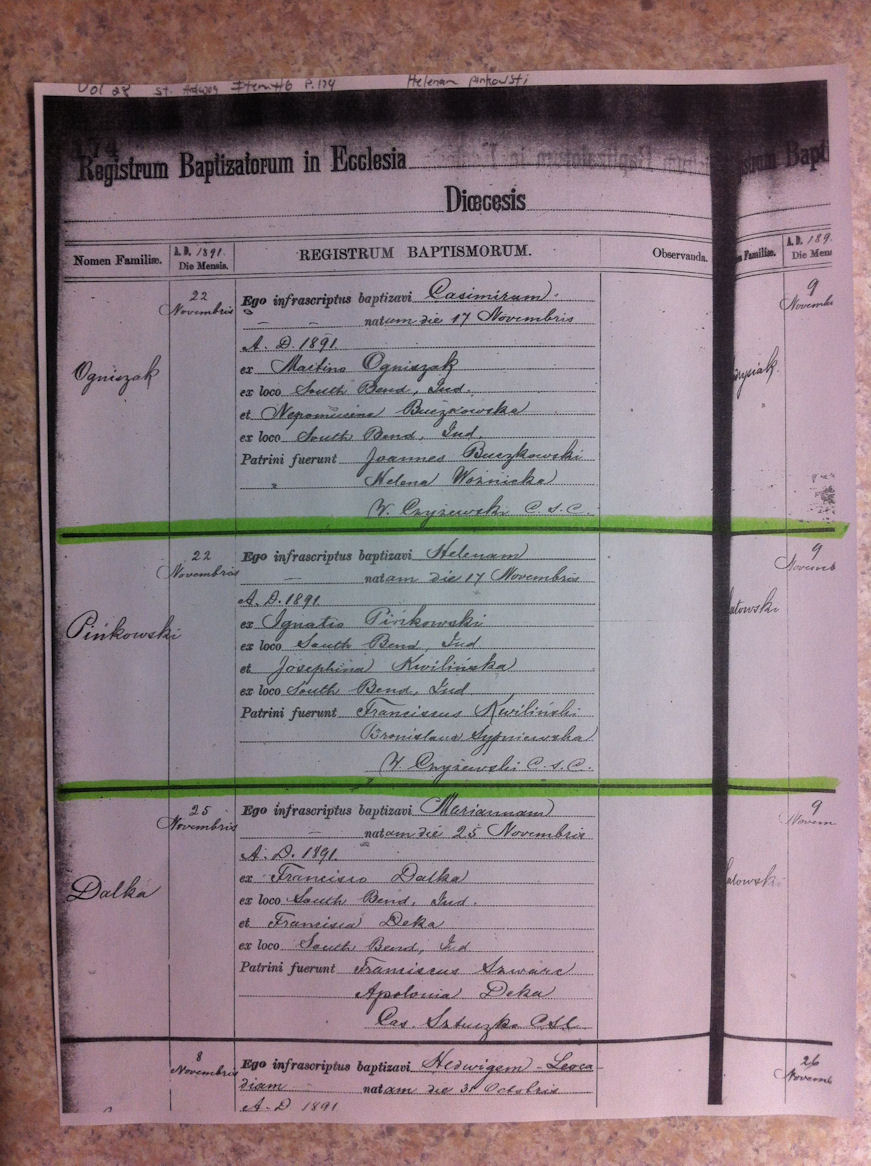 Vol 28 St. Hedwig Item #6 P. 174 Helenam Pinkowski
174
Registrum Baptizatorum in Ecclesia
Diœcesis
Nomen Familiæ.
A. D. 1891.
Die Mensis.
REGISTRUM BAPTISMORUM.
Observanda.
22
Novembris
Ogniszak
Ego infrascriptus baptizavi Casimirum
natum die 17 Novembris
A. D. 1891
ex Martino Ogniszak
ex loco South Bend, Ind.
et Nepomucena Buczkowska
ex loco South Bend, Ind.
Patrini fuerunt Joannes Buczkowski
" Helena Woznicka
V. Czyzewski C.S.C.
22
Novembris
Pińkowski
Ego infrascriptus baptizavi Helenam
natam die 17 Novembris
A. D. 1891
ex Ignatio Pińkowski
ex loco South Bend, Ind
et Josephina Kwilińska
ex loco South Bend, Ind
Patrini fuerunt Franciscus Kwiliński
Bronislava Sypniewska
V. Czyżewski C.S.C.
25
Novembris
Dalka
Ego infrascriptus baptizavi Mariannam
natam die 25 Novembris
A. D. 1891.
ex Francisco Dalka
ex loco South Bend, Ind.
et Francisca Deka
ex loco South Bend, Ind
Patrini fuerunt Franciscus Szwarc
Apolonia Deka
Cas. Sztuczko C.S.C.
8
Novembris
Ego infrascriptus baptizavi Hedwigem - Leoca
diam natam die 31 Octobris
A. D 1891
Bapt
Familiæ.
A. D. 189
Die Men
9
Novembr
9
Novemb
atowski
9
Novem
atowski
26
Novemb